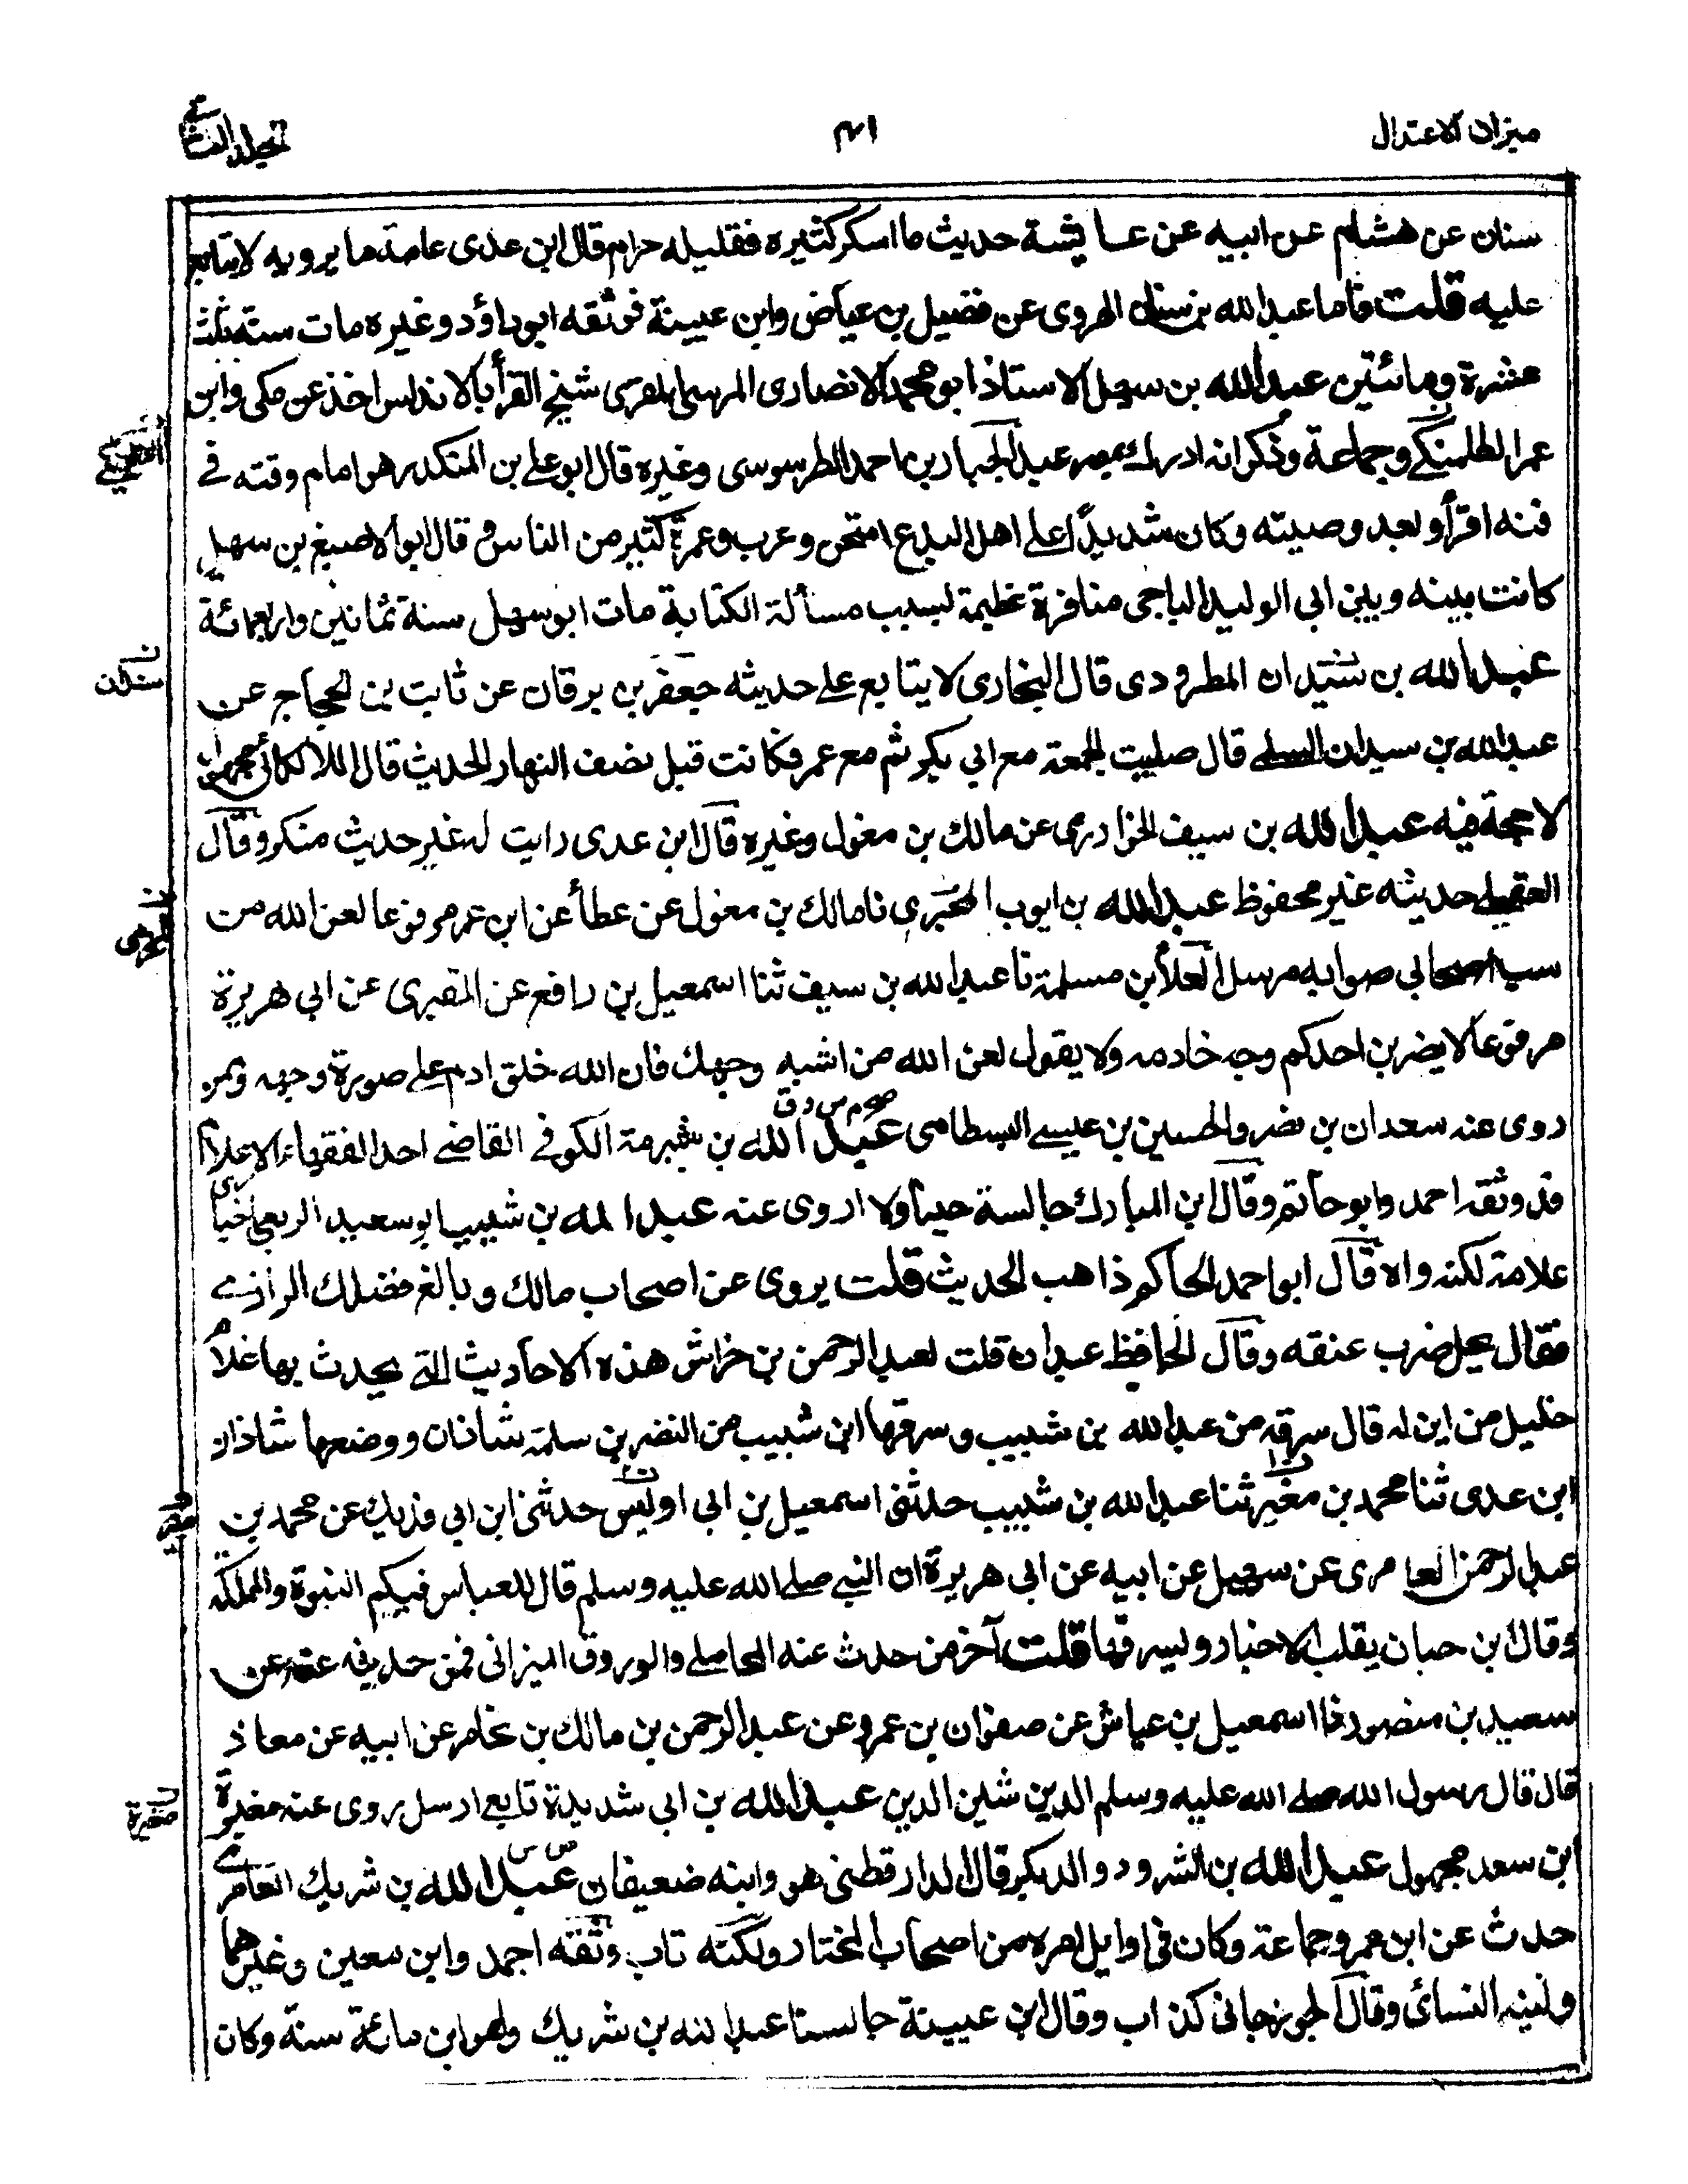 ميزان الاعتدال
٤١
المجلد الثاني
سنان عن هشام عن ابيه عن عايشة حديث ما اسكر كثيره فقليله حرام قال ابن عدى عامة ما يرويه لا يتابع
عليه قلت فاما عبد الله بن سنان الهروى عن فضيل بن عياض وابن عيينة فوثقه ابو داؤد وغيره مات سنة ثلث
عشرة ومائتين عبد الله بن سهل الاستاذ ابو محمد الانصارى المرسى المقرى شيخ القرأ بالاندلس اخذ عن مكى وابن
عمر الطلمنكے وجماعة وذكر انه ادرك بمصر عبد الجبار بن احمد الطرسوسى وغيره قال ابو على بن المنكدر هو امام وقته فے
فنه اقرأ وبعد وصيته وكان شديدًا على اهل البدع امتحن وعرب وعمرة كثير من الناس وقال ابو الاصبغ بن سهل
كانت بينه وبين ابى الوليد الباجى منافرة عظيمة بسبب مسألة الكتابة مات ابو سهل سنة ثمانين واربعمائة
عبد الله بن سيدان المطرودى قال البخارى لا يتابع على حديثه جعفر بن برقان عن ثابت بن الحجاج عن
عبد الله بن سيدان السلمے قال صليت الجمعة مع ابي بكر ثم مع عمر فكانت قبل نصف النهار الحديث قال اللالكائى مجهول
لا حجة فيه عبد الله بن سيف الخوارزمى عن مالك بن مغول وغيره قال ابن عدى رايت له غير حديث منكر وقال
العقيلے حديثه غير محفوظ عبد الله بن ايوب المخرمى نا مالك بن مغول عن عطأ عن ابن عمر مرفوعا لعن الله من
سب اصحابي صوابه مرسل العلأ بن مسلمة نا عبد الله بن سيف ثنا اسمعيل بن رافع عن المقبرى عن ابى هريرة
مرفوعا لا يضربن احدكم وجه خادمه ولا يقول لعن الله من اشبه وجهك فان الله خلق ادم على صورة وجهه وممن
روى عنه سعدان بن نصر والحسين بن عيسے البسطامى عبد الله بن شبرمة الكوفى القاضے احد الفقهاء الاعلام
قد وثقه احمد وابو حاتم وقال ابن المبارك جالسته حينا ولا اروى عنه عبد الله بن شبيب ابو سعيد الربعى اخبارى
علامة لكنه واه قال ابو احمد الحاكم ذاهب الحديث قلت يروى عن اصحاب مالك وبالغ فضلك الرازے
فقال يحل ضرب عنقه وقال الحافظ عبدان قلت لعبد الرحمن بن خراش هذه الاحاديث التے يحدث بها غلام
خليل من اين له قال سرقه من عبد الله بن شبيب وسرقها ابن شبيب من النضر بن سلمة شاذان ووضعها شاذان
ابن عدى ثنا محمد بن مغير ثنا عبد الله بن شبيب حدثنى اسمعيل بن ابى اويس حدثنى ابن ابى فديك عن محمد بن
عبد الرحمن العامرى عن سهيل عن ابيه عن ابى هريرة ان النبے صلے الله عليه وسلم قال للعباس فيكم النبوة والمملكة
وقال ابن حبان يقلب الاخبار ويسرقها قلت آخر من حدث عنه المحاملے وابو روق الهزانى فمن حديثه عنه عن
سعيد بن منصور نا اسمعيل بن عياش عن صفوان بن عمرو عن عبد الرحمن بن مالك بن يخامر عن ابيه عن معاذ
قال قال رسول الله صلے الله عليه وسلم الدين شين الدين عبد الله بن ابى شديدة تابع ارسل روى عنه مغيرة
ابن سعد مجهول عبد الله بن الشرود والد بكر قال الدارقطنى هو وابنه ضعيفان عبد الله بن شريك العامرے
حدث عن ابن عمر وجماعة وكان فى اوايل امره من اصحاب المختار ولكنه تاب وثقه احمد وابن معين وغيرهما
ولينه النسائ وقال الجوزجانى كذاب وقال ابن عيينة جالسنا عبد الله بن شريك وهو ابن مائة سنة وكان